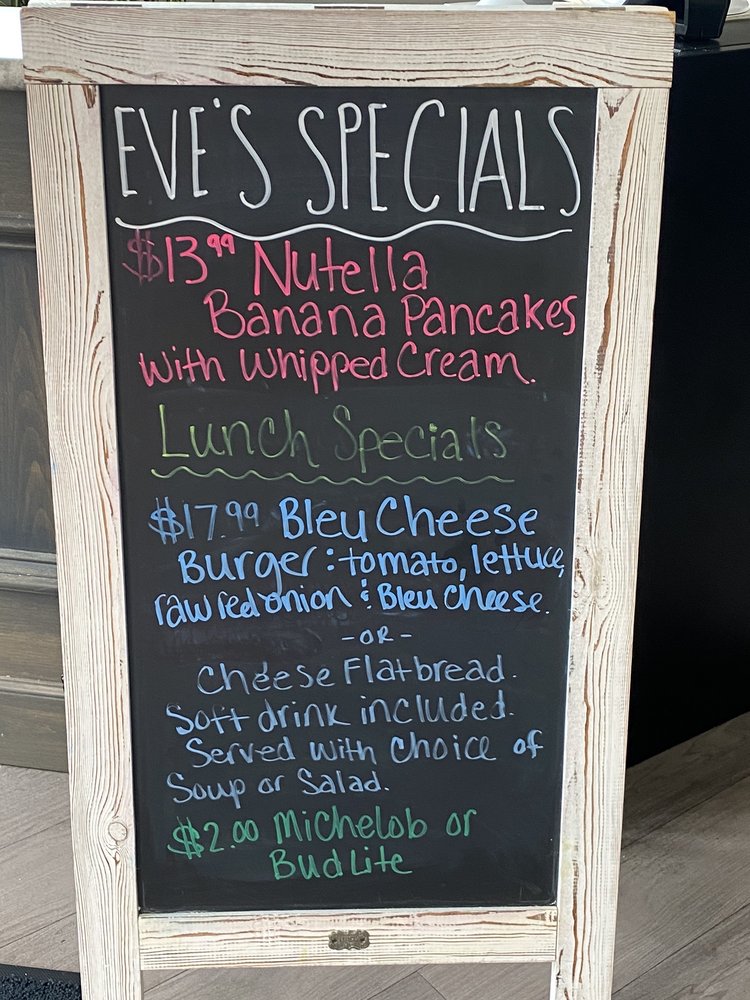 EVE'S SPECIALS
$13.99 Nutella
Banana Pancakes
with whipped Cream.
Lunch Specials
$17.99 Bleu Cheese
Burger: tomato, lettuce,
raw red onion & Bleu cheese.
-OR-
Cheese Flatbread.
Soft drink included.
Served with choice of
Soup or Salad.
$2.00 Michelob or
Bud Lite